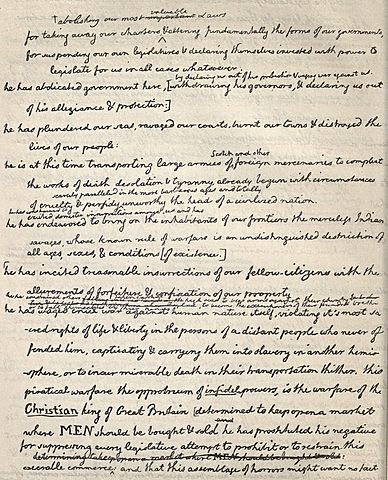 abolishing our most important Laws
valuable
for taking away our charters & altering fundamentally the forms of our governments,
for suspending our own legislatures & declaring themselves invested with power to
legislate for us in all cases whatsoever:
by declaring us out of his protection & waging war against us.
he has abdicated government here, [withdrawing his governors, & declaring us out
of his allegiance & protection:]
he has plundered our seas, ravaged our coasts, burnt our towns & destroyed the
lives of our people:
Scotch and other
he is at this time transporting large armies of foreign mercenaries to compleat
the works of death desolation & tyranny already begun with circumstances
scarcely paralleled in the most barbarous ages and totally
of cruelty & perfidy unworthy the head of a civilized nation.
excited domestic insurrections amongst us and has
he has endeavored to bring on the inhabitants of our frontiers the merciless Indian
savages, whose known rule of warfare is an undistinguished destruction of
all ages, sexes, & conditions [of existence.]
[he has incited treasonable insurrections of our fellow-citizens with the
allurements of forfeiture & confiscation of our property.
he has waged cruel war against human nature itself, violating it's most sa-
-cred rights of life & liberty in the persons of a distant people who never of-
fended him, captivating & carrying them into slavery in another hemis-
-sphere, or to incur miserable death in their transportation thither. this
piratical warfare, the opprobrium of infidel powers, is the warfare of the
Christian king of Great Britain [determined to keep open a market
where MEN should be bought & sold he has prostituted his negative
for suppressing every legislative attempt to prohibit or to restrain this
determining to keep open a market where MEN should be bought & sold:
execrable commerce and that this assemblage of horrors might want no fact